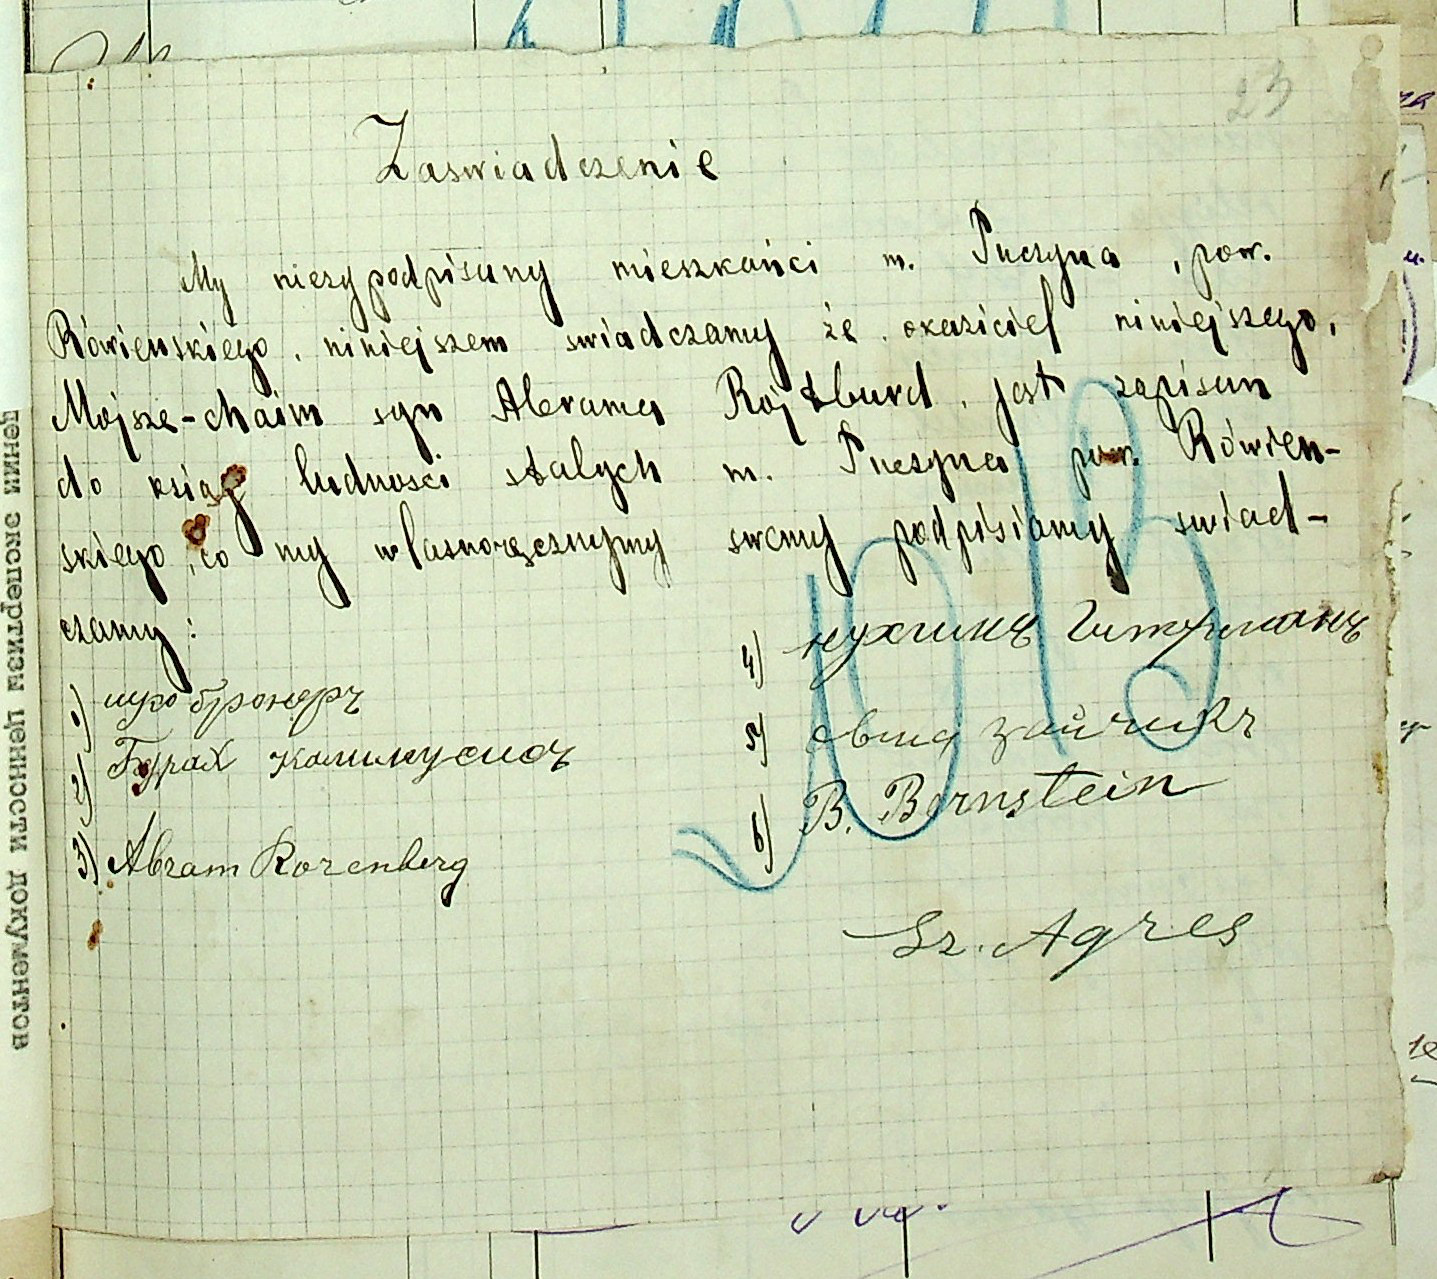 23
Zaswiadczenie
My niezypodpisany mieszkańci m. Tuczyna, pow.
Rówienskiego, niniejszem swiadczamy że okaziciel niniejszego,
Mojsze-Chaim syn Abrama Rojtburd, jest zapisan
do ksiąg ludnosci stalych m. Tuczyna pow. Rówien-
skiego, co my wlasnoręcznymy swemy podpisiamy swiad-
czamy:
1)
2)
3) Abram Rozenberg
4)
5) зайчикъ
6) B. Bernstein
Sz. Agres
1013
ценки экспертизы ценности документов